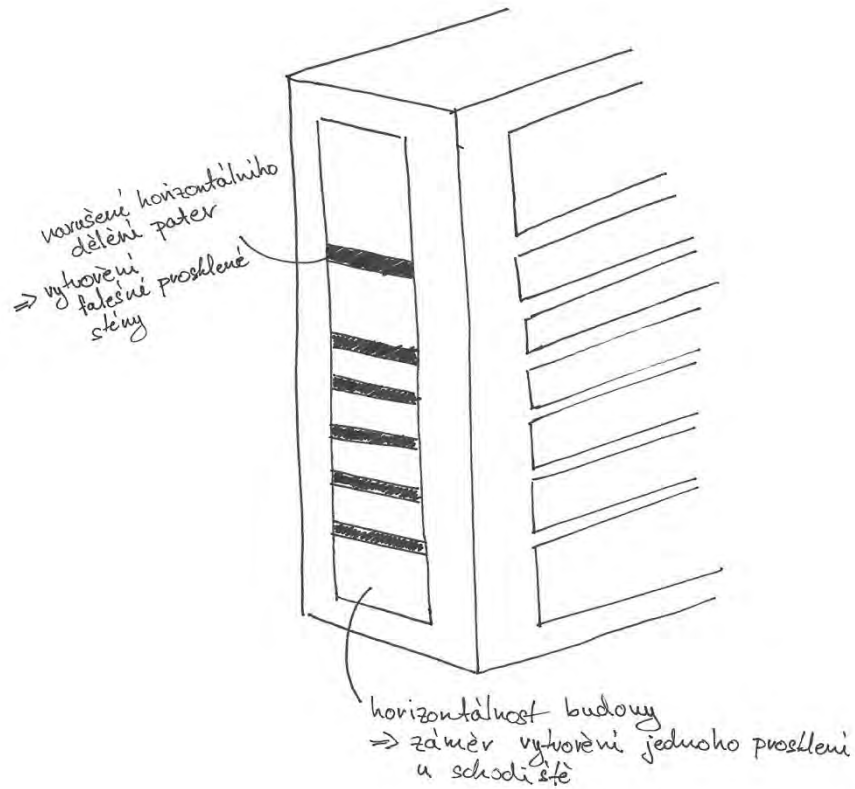 narušení horizontálního
dělění pater
⇒ vytvoření
falešné prosklené
stěny
horizontálnost budovy
⇒ záměr vytvoření jednoho prosklení
u schodiště